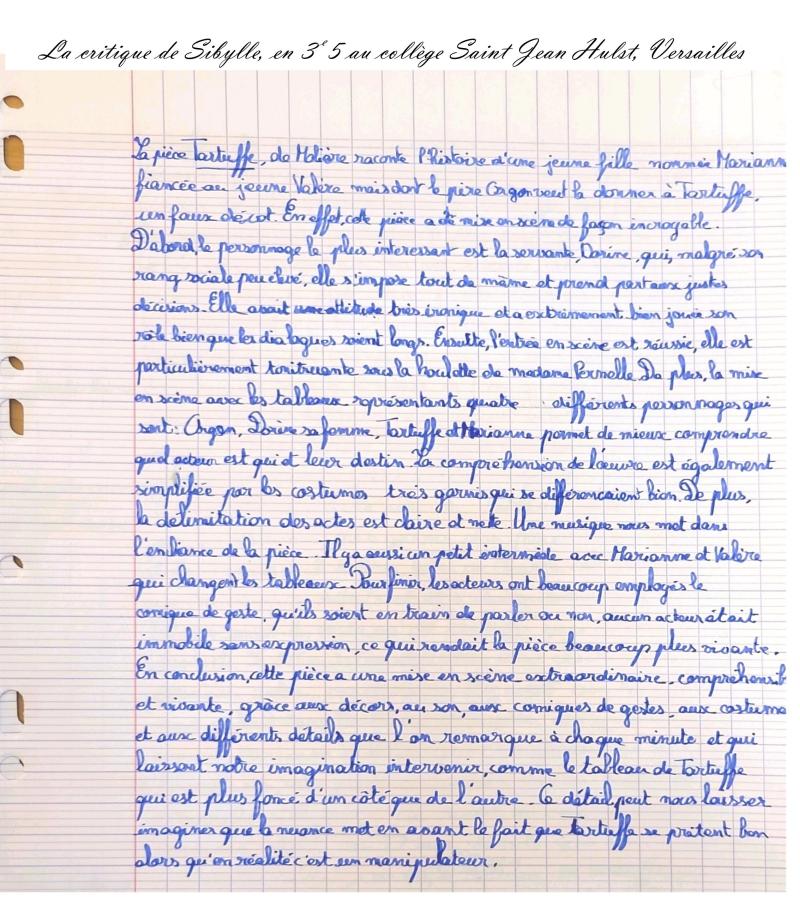 La critique de Sibylle, en 3e 5 au collège Saint Jean Hulst, Versailles
La pièce Tartuffe, de Molière raconte l'histoire d'une jeune fille nommée Mariann
fiancée au jeune Valère mais dont le père Orgon veut la donner à Tartuffe,
un faux dévot. En effet, cette pièce a été mise en scène de façon incroyable.
D'abord, le personnage le plus interessant est la servante, Dorine, qui, malgré son
rang sociale peu élevé, elle s'impose tout de même et prend part aux justes
décisions. Elle avait une attitude très ironique et a extrèmement bien jouée son
rôle bien que les dialogues soient longs. Ensuite, l'entrée en scène est réussie, elle est
particulièrement tonitruante sous la houlotte de madame Pernelle. De plus, la mise
en scène avec les tableaux représentants quatre différents personnages qui
sont : Orgon, Dorine sa femme, Tartuffe et Marianne permet de mieux comprendre
quel acteur est qui et leur destin. La compréhension de l'œuvre est également
simplifiée par les costumes très garnis qui se différencaient bien. De plus,
la délimitation des actes est claire et nette. Une musique nous met dans
l'embiance de la pièce. Il y a aussi un petit intermède avec Marianne et Valère
qui changent les tableaux. Pour finir, les acteurs ont beaucoup employés le
comique de geste, qu'ils soient en train de parler ou non, aucun acteur était
immobile sans expression, ce qui rendait la pièce beaucoup plus vivante.
En conclusion, cette pièce a une mise en scène extraordinaire, compréhensib
et vivante, grâce aux décors, au son, aux comiques de gestes, aux costume
et aux différents détails que l'on remarque à chaque minute et qui
laissent notre imagination intervenir, comme le tableau de Tartuffe
qui est plus foncé d'un côté que de l'autre. Ce détail peut nous laisser
imaginer que la nuance met en avant le fait que Tartuffe se prétent bon
alors qu'en réalité c'est un manipulateur.